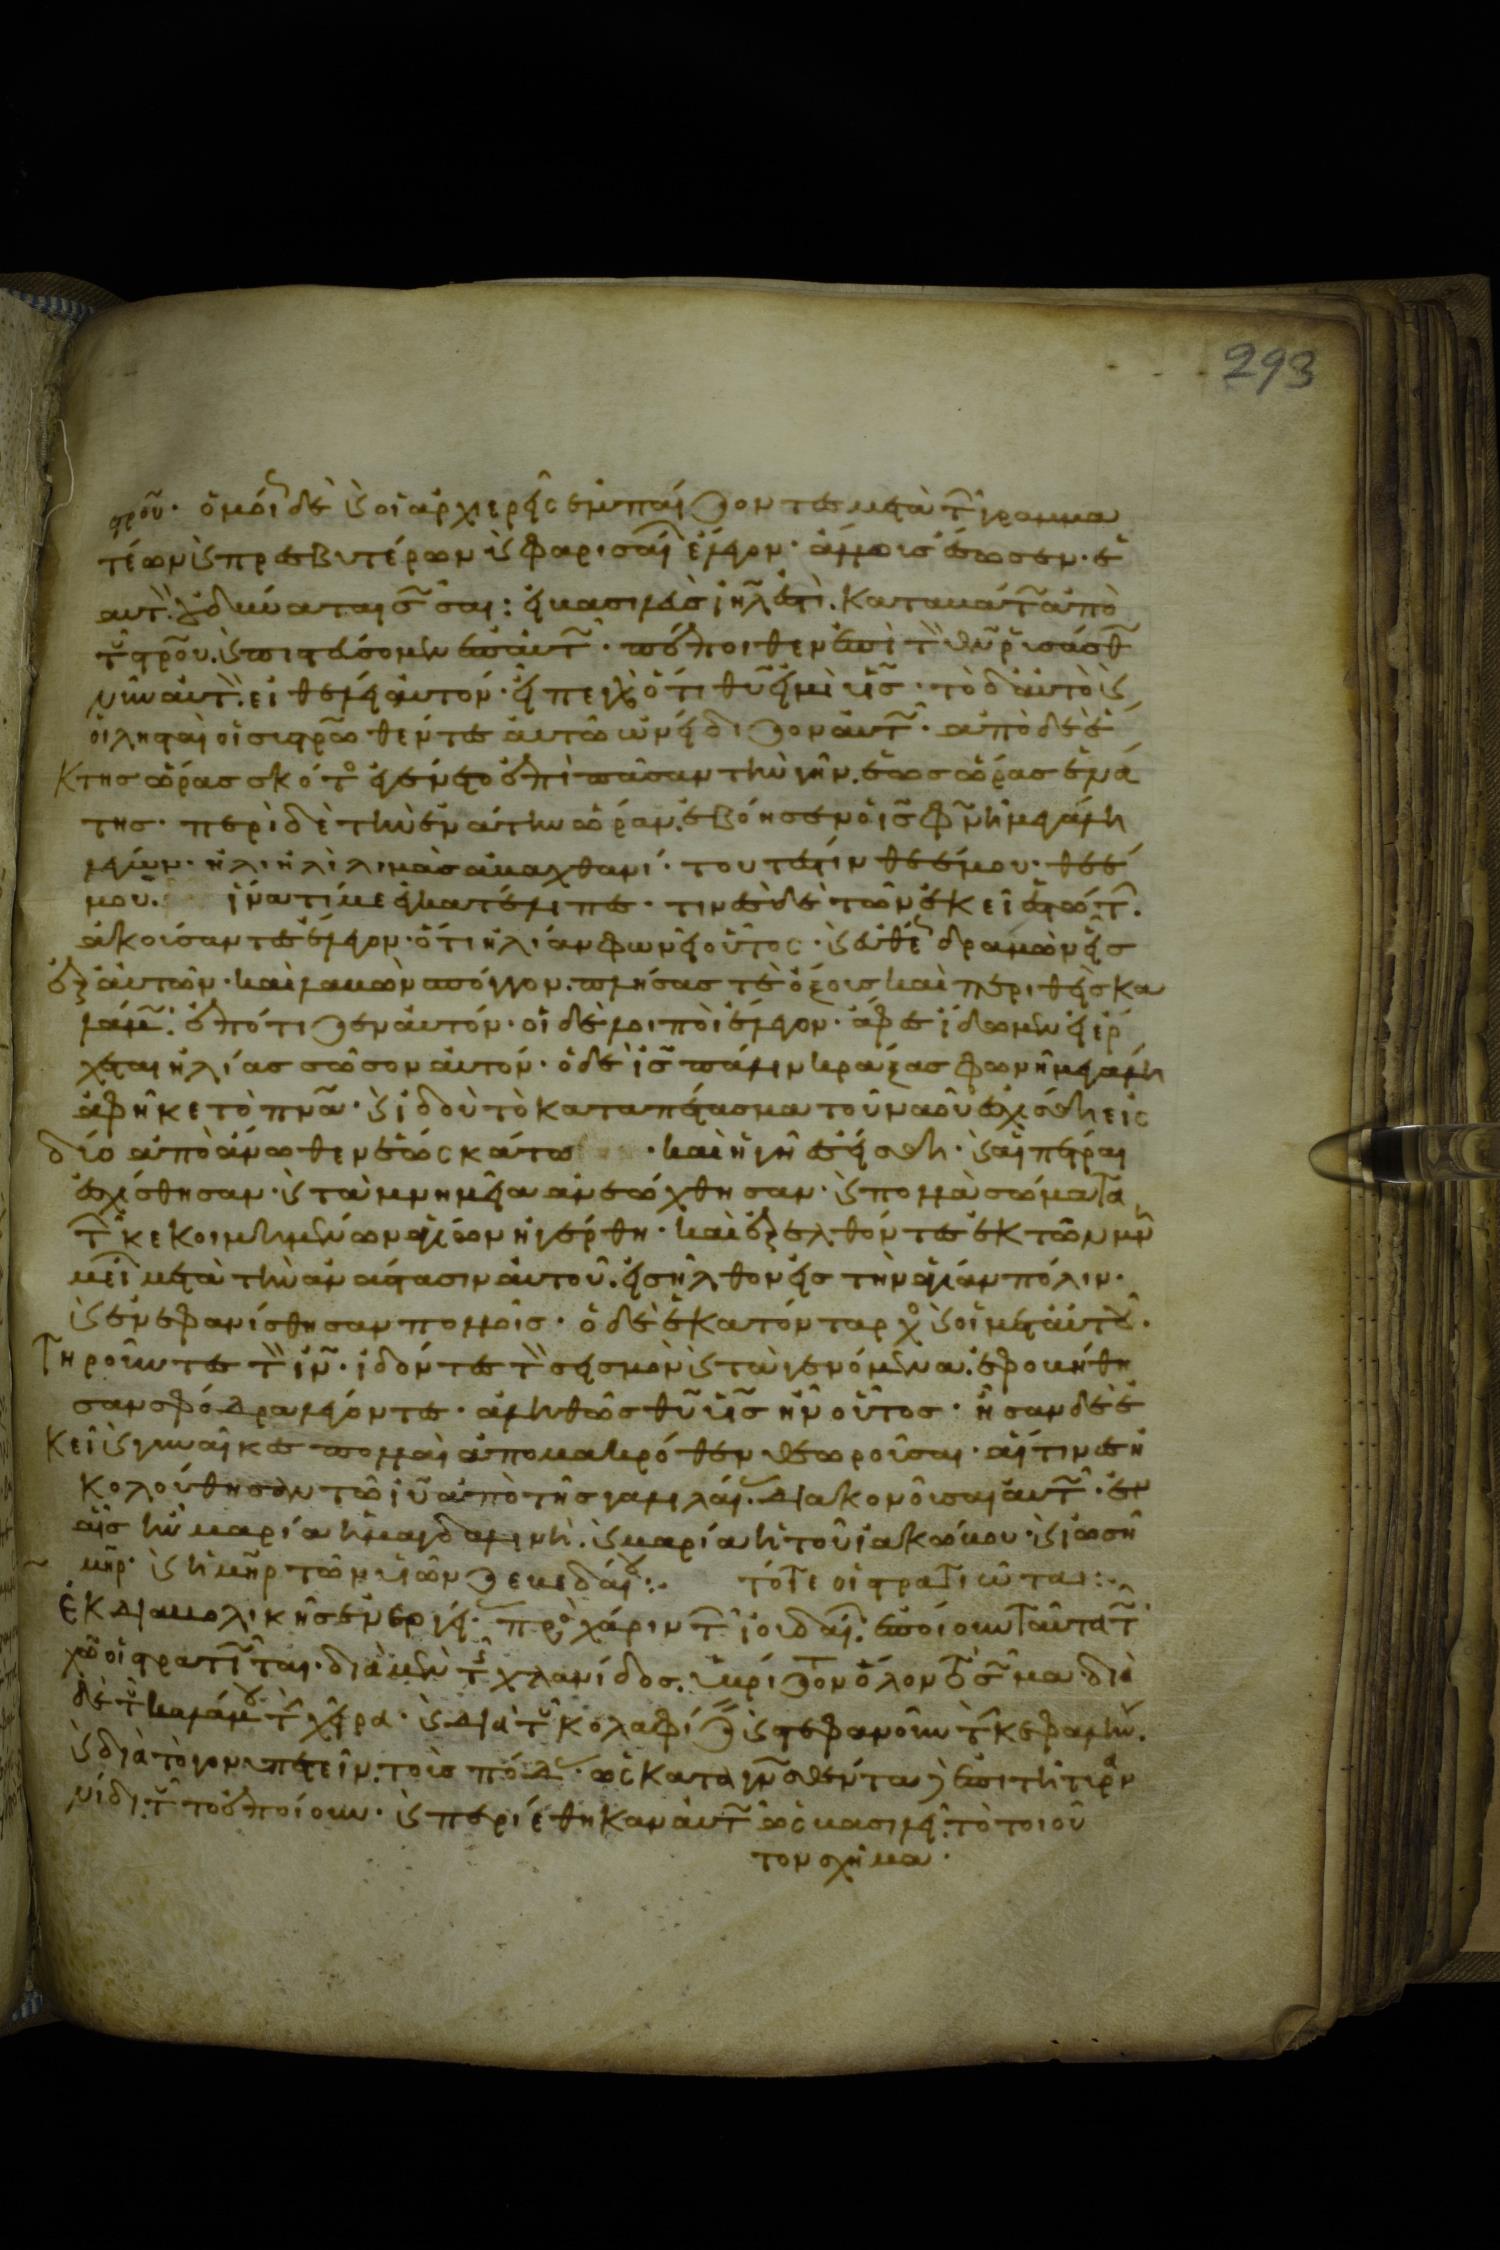 293
σρου̃· ὁμοί δὲ κ̀ οἱ ἀρχιερεῖς ἐμπαίζοντες μετὰ τ̃ γραμμα
τέων κ̀ πρεσβυτέρων κ̀ φαρισαί ἔλεγον· ἄλλοις ἔσωσεν· ἑ
αυτ̀ οὐ δύναται σω̃σαι: εἰ βασιλεὺς ἰηλ̃ ἐστὶ. καταβάτω̃ ἀπὸ
τοῦ σρου̃. κ̀ πιστεύσομεν ἐπ' αὐτ̃· πέποιθεν ἐπὶ τ̀ θν̃ ῥυσάσθ̃
νῦν αὐτ̀. εἰ θέλει αὐτόν· εἶπε γὰρ ὅτι θυ̃ εἰμὶ υἱς̃· τὸ δ' αὐτὸ κ̀
οἱ λησταὶ οἱ συσρω̃θέντες αὐτῶ ὠνείδιζον αὐτ̃· ἀπὸ δὲ ἕ
κτης ὥρας σκότο ἐγένετο ἐπὶ πᾶσαν τὴν γῆν. ἕως ὥρας ἐνά
της· περὶ δὲ τὴν ἐνάτην ὥραν. ἐβόησεν ὁ ις̃ φων̃ῆ μεγάλη
λέγων· ἠλι ἠλὶ λιμὰ σαβαχθανί· τουτέστιν θεέ μου· θεέ
μου· ἱνατί με ἐγκατέλιπες· τινὲς δὲ τῶν ἐκεῖ ἑστώτ̃.
ἀκούσαντες ἔλεγον· ὅτι ἠλίαν φωνεῖ οὗτος· κ̀ εὐθέ δραμὼν εἷς
ἐξ αὐτῶν· καὶ λαβὼν σπόγγον. πλήσας τὲ ὄξους καὶ περιθεὶς κα
λάμ̃. ἐπότιζεν αὐτόν· οἱ δὲ λοιποὶ ἔλεγον· ἄφες ἴδωμεν εἰ ἔρ
χεται ἠλίας σῶσον αὐτόν· ὁ δὲ ις̃ πάλιν κράξας φωνῆ μεγάλη
ἀφῆκε τὸ πνα̃· κ̀ ἰδοὺ τὸ καταπέτασμα τοῦ ναοῦ ἐσχίσθη εἰς
δύο ἀπὸ ἄνωθεν ἕως κάτω· καὶ ἡ γῆ ἐσείσθη· κ̀ αἱ πέτραι
ἐσχίσθησαν· κ̀ τὰ μνημεῖα ἀνεώχθησαν· κ̀ πολλὰ σώματα
τ̃ κεκοιμημένων ἁγίων ἠγέρθη· καὶ ἐξελθόντες ἐκ τῶν μν
μεί μετὰ τὴν ἀνάστασιν αὐτοῦ. εἰσῆλθον εἰς τὴν ἁγίαν πόλιν·
κ̀ ἐνεφανίσθησαν πολλοῖς· ὁ δὲ ἑκατόνταρχο κ̀ οἱ μετ' αὐτοῦ.
τηροῦντες τ̀ ιν̃· ἰδόντες τ̀ σεισμὸν κ̀ τὰ γενόμενα. ἐφοβήθη
σαν σφόδρα λέγοντες· ἀληθῶς θυ̃ υἱς̃ ἦν οὗτος· ἦσαν δὲ ἐ
κεῖ κ̀ γυναῖκες πολλαὶ ἀπὸ μακρόθεν θεωροῦσαι· αἵτινες ἠ
κολούθησαν τῶ ιυ̃ ἀπὸ τῆς γαλιλαί. διακονοῦσαι αὐτ̃· ἐν
αἷς ἦν μαρία ἡ μαγδαληνὴ. κ̀ μαρία ἡ τοῦ ἰακώβου· κ̀ ἰωσῆ
μηρ̃· κ̀ ἡ μηρ̃ τῶν υἱῶν ζεβεδαίου:. τότε οἱ στρατιῶται:.
ἐκ διαβολικῆς ἐνεργεί. προ χάριν τ̃ ἰουδαί. ἐποίουν ταῦτα τ̃
χω̃ οἱ στρατιῶται· διὰ μὲν τῆς χλανίδος. ὕβριζον ὅλον τὸ σω̃μα· διὰ
δὲ τοῦ καλάμου τ̀ χεῖρα· κ̀ διὰ τοῦ κολαφίζ κ̀ στεφανοῦν τ̀ κεφαλήν.
κ̀ διὰ τὸ γονυπετεῖν. τοὺς πόδ· ὡς καταγν̃ωσθέντα ἐπὶ τῆ τυραν
νίδι. τοῦτο ἐποίουν· κ̀ περιέθηκαν αὐτ̃ ὡς βασιλεῖ. τὸ τοιοῦ
τον σχῆμα·